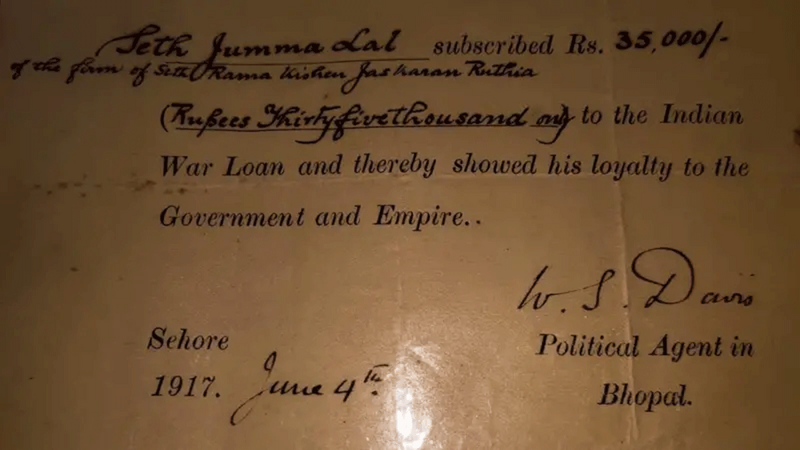 Seth Jumma Lal subscribed Rs. 35,000/-
of the firm of Seth Rama Kishen Jaskaran Ruthia
(Rupees Thirtyfivethousand only) to the Indian
War Loan and thereby showed his loyalty to the
Government and Empire..
W. S. Davis
Sehore
Political Agent in
1917. June 4th.
Bhopal.